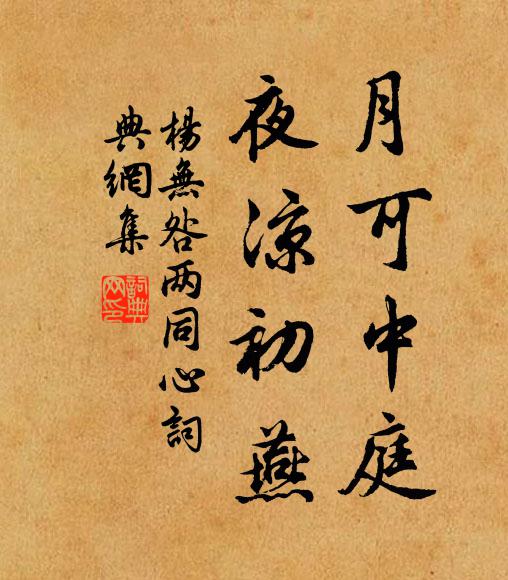 月可中庭
夜凉初燕
楊無咎两同心詞
典網集
詞典
网印